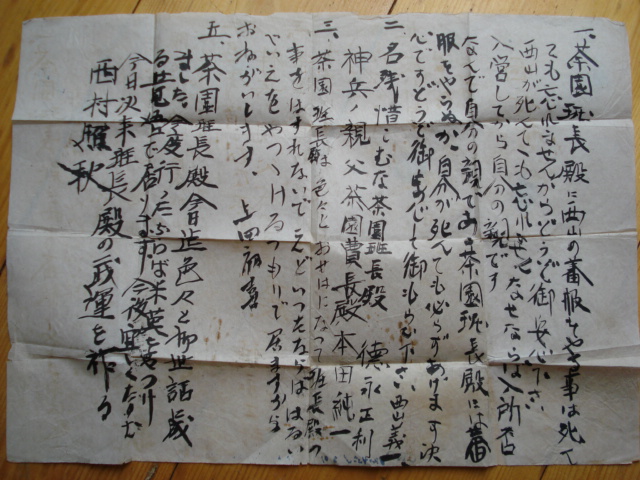 一、茶園班長殿に西山の蕃服をやる事は死て
ても忘れませんからどうぞ御安心下さい
西山が死んでも忘れませんなぜならば入所否
入営してから自分の親です
なんで自分の親である茶園班長殿には蕃
服をやらぬか自分が死んでも必らずあげます決
心ですどうぞ御安心して御もらひ下さい西山義一
二、名残惜こむな茶園班長殿 德永正利
神兵ノ親父茶園曹長殿 本田純一
三、茶園班長殿色々とおせはになって班長殿の
事をはすれないで
やいえをやっつけるつもりで居ますから
おねがいします。上田
五、茶園班長殿會進色々と御世話歳
ました、今度行ったらば米英をやつけ
る覚悟で居ります今後
今日次来班長殿の武運を祈る
西村 秋